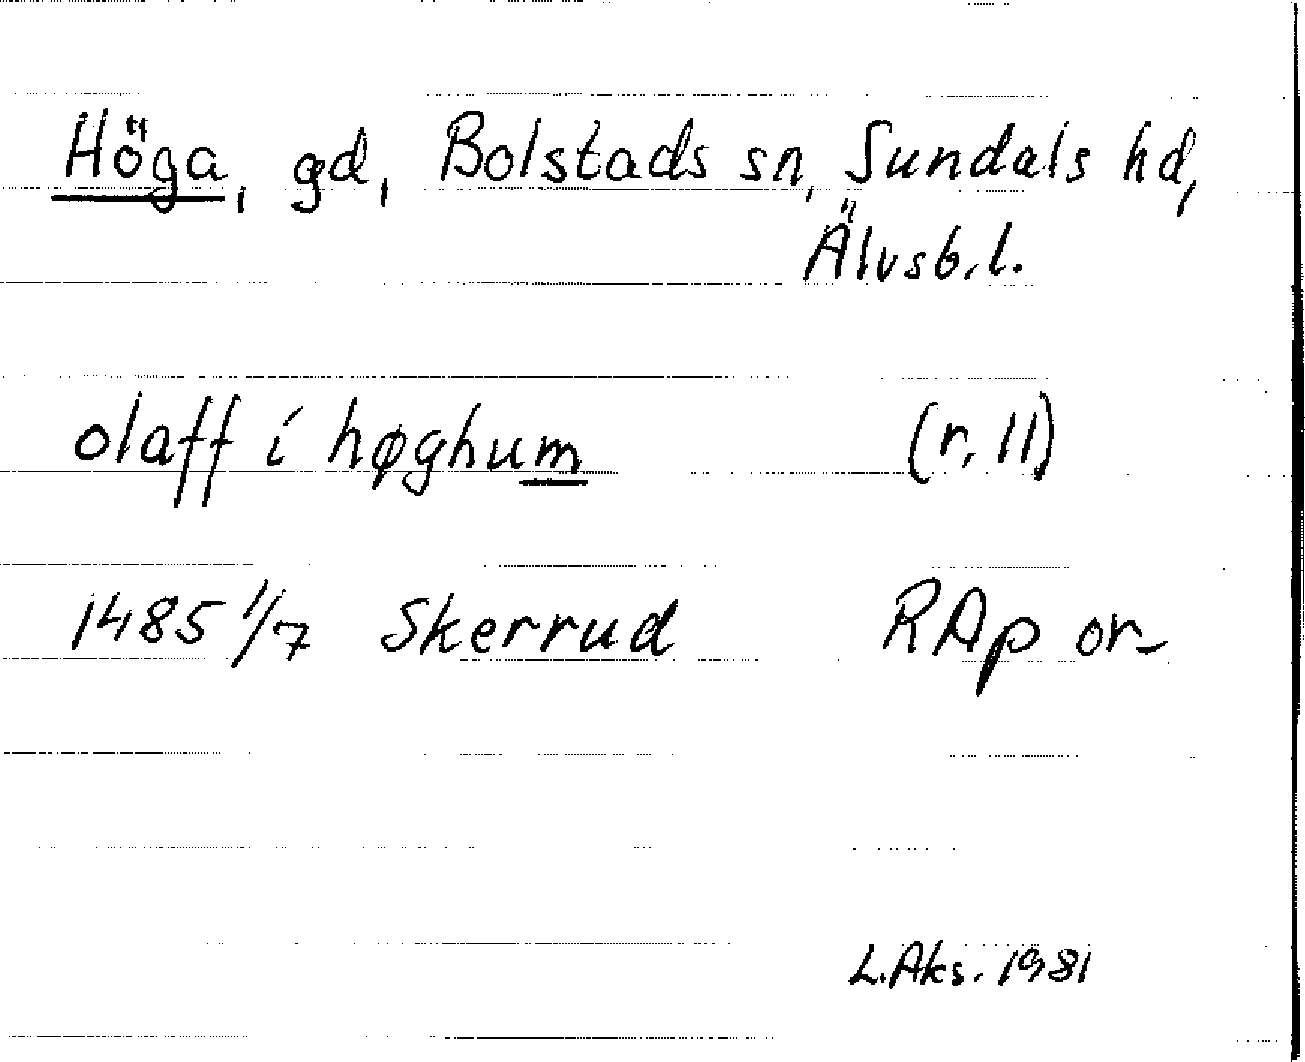 Höga, gd, Bolstads sn, Sundals hd,
Älvsb.l.
olaff i høghum (r, 11)
1485 1/7 Skerrud RAp or
L.Aks. 1981